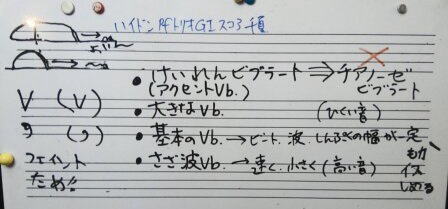 ハイドン Pfトリオ GI スコ3 千夏
• けいれんビブラート ⇒ チアノーゼ
(アクセントVb.) ビブラート
V (V)
• 大きなVb. (ひくい音)
, (,)
• 基本のVb. → ビート、波、しんぷくの幅が一定
• さざ波Vb. → 速く、小さく (高い音)
フェイント
ため!!
しめる